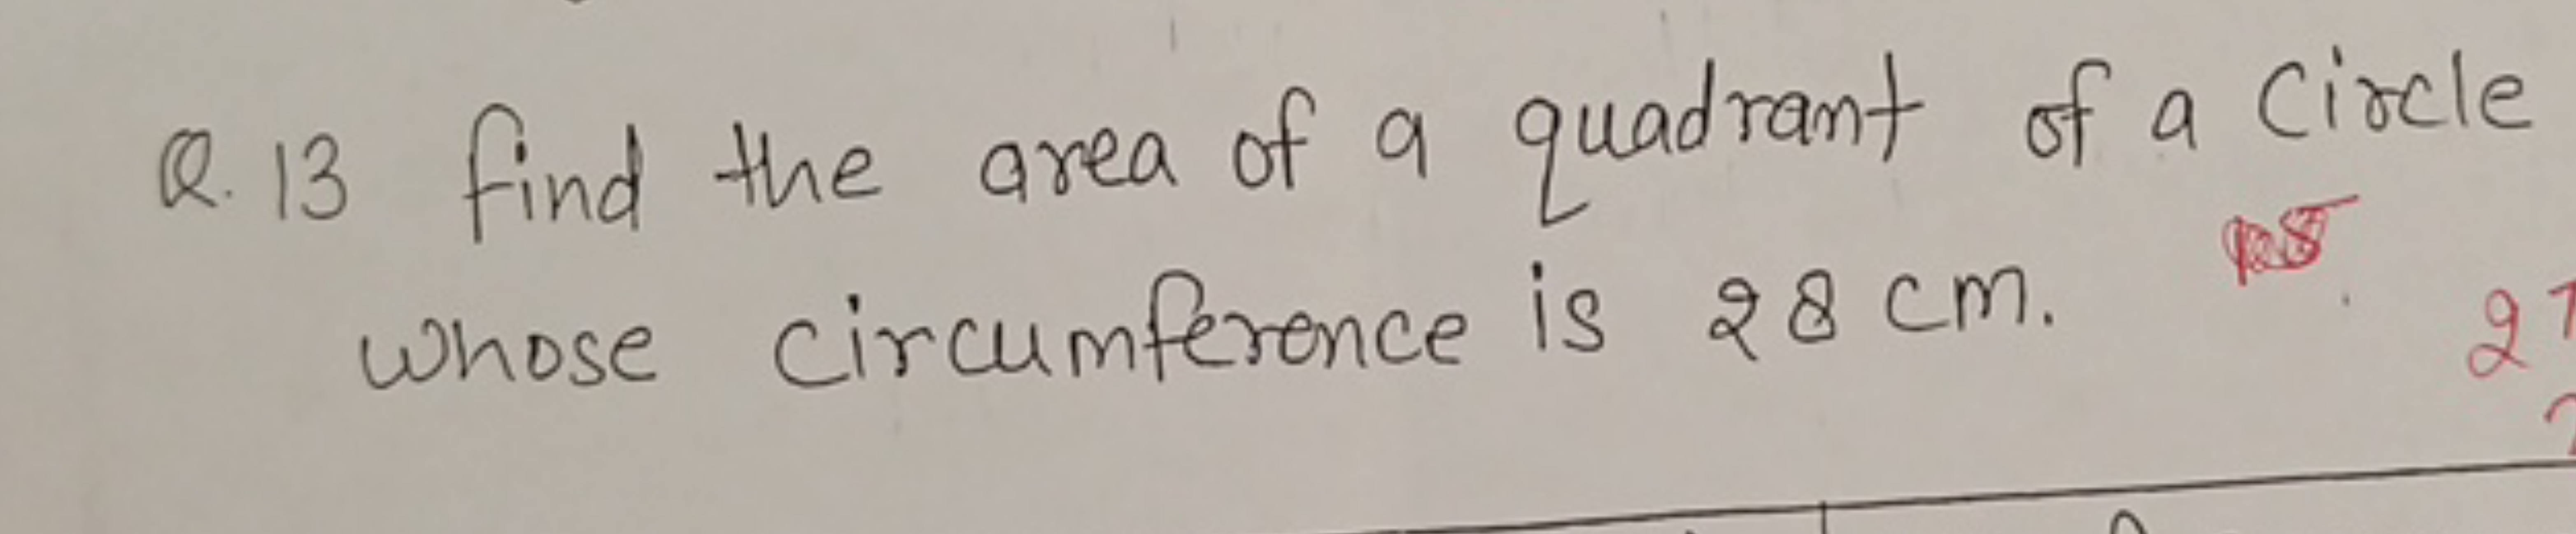 Q.13 find the area of a quadrant of a Circle
whose circumference is 28 cm.